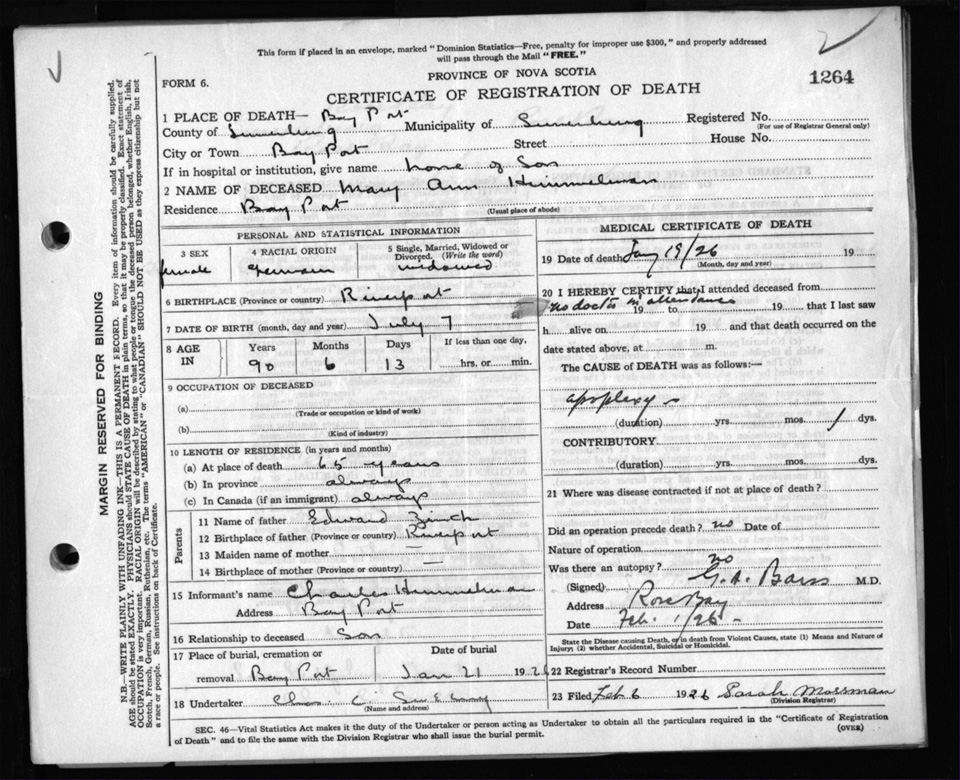 This form if placed in an envelope, marked "Dominion Statistics—Free, penalty for improper use $300," and properly addressed
will pass through the Mail "FREE."
PROVINCE OF NOVA SCOTIA
FORM 6.
1264
CERTIFICATE OF REGISTRATION OF DEATH
1 PLACE OF DEATH— Bay Port
County of Lunenburg Municipality of Lunenburg Registered No.
(For use of Registrar General only)
City or Town Bay Port Street House No.
If in hospital or institution, give name home of Son
2 NAME OF DECEASED Mary Ann Himmelman
Residence Bay Port
(Usual place of abode)
PERSONAL AND STATISTICAL INFORMATION
3 SEX 4 RACIAL ORIGIN 5 Single, Married, Widowed or
Divorced. (Write the word)
female German widowed
6 BIRTHPLACE (Province or country) Riverport
7 DATE OF BIRTH (month, day and year) July 7
8 AGE IN Years Months Days If less than one day,
90 6 13 hrs. or min.
9 OCCUPATION OF DECEASED
(a)
(Trade or occupation or kind of work)
(b)
(Kind of industry)
10 LENGTH OF RESIDENCE (in years and months)
(a) At place of death 65 years
(b) In province always
(c) In Canada (if an immigrant) always
Parents
11 Name of father Edward
12 Birthplace of father (Province or country) Riverport
13 Maiden name of mother —
14 Birthplace of mother (Province or country) —
15 Informant's name Charles Himmelman
Address Bay Port
16 Relationship to deceased Son
17 Place of burial, cremation or removal Date of burial
Bay Port Jan 21 1926
18 Undertaker
(Name and address)
MEDICAL CERTIFICATE OF DEATH
19 Date of death Jany 19/26 19
(Month, day and year)
20 I HEREBY CERTIFY that I attended deceased from
no doctor in attendance 19 to 19 that I last saw
h alive on 19 and that death occurred on the
date stated above, at m.
The CAUSE of DEATH was as follows:—
apoplexy
(duration) yrs. mos. 1 dys.
CONTRIBUTORY
(duration) yrs. mos. dys.
21 Where was disease contracted if not at place of death?
Did an operation precede death? no Date of
Nature of operation
Was there an autopsy? no
(Signed) G. A. Barss M.D.
Address Rose Bay
Date Feb. 1/26
State the Disease causing Death, or in death from Violent Causes, state (1) Means and Nature of
Injury; (2) whether Accidental, Suicidal or Homicidal.
22 Registrar's Record Number
23 Filed Feb 6 1926 Sarah Mossman
(Division Registrar)
SEC. 46—Vital Statistics Act makes it the duty of the Undertaker or person acting as Undertaker to obtain all the particulars required in the "Certificate of Registration
of Death" and to file the same with the Division Registrar who shall issue the burial permit.
(OVER)
MARGIN RESERVED FOR BINDING
N.B.—WRITE PLAINLY WITH UNFADING INK—THIS IS A PERMANENT RECORD. Every item of information should be carefully supplied.
AGE should be stated EXACTLY. PHYSICIANS should STATE CAUSE OF DEATH in plain terms, so that it may be properly classified. Exact statement of
OCCUPATION is very important. RACIAL ORIGIN will be described by stating to what people or tongue the deceased person belonged, whether English, Irish,
Scotch, French, German, Russian, Ruthenian, etc. The terms "AMERICAN" or "CANADIAN" SHOULD NOT BE USED as they express citizenship but not
a race or people. See instructions on back of Certificate.